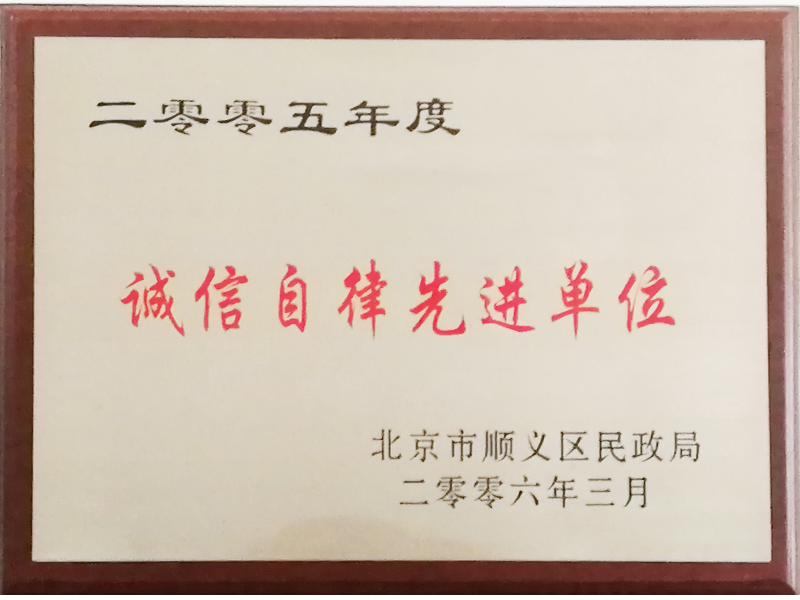 二零零五年度
诚信自律先进单位
北京市顺义区民政局
二零零六年三月